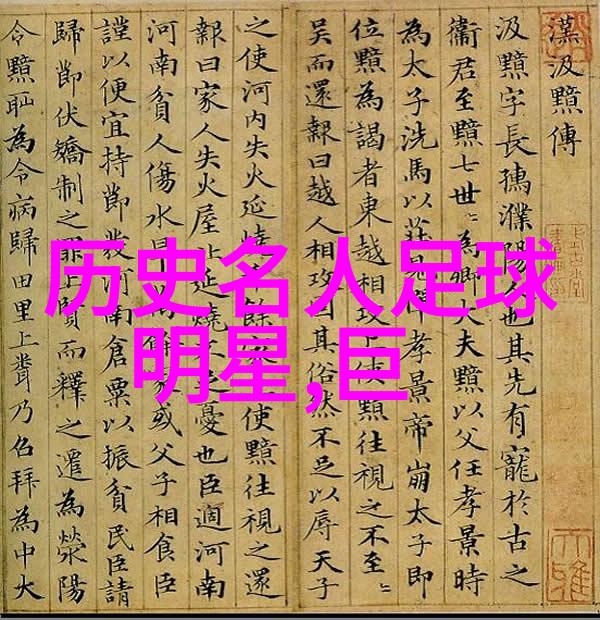 漢汲黯傳
汲黯字長孺濮陽人也其先有寵於古之
衛君至黯七世〻為卿大夫黯以父任孝景時
為太子洗馬以莊見憚孝景帝崩太子即
位黯為謁者東越相攻上使黯往視之不至〻
吳而還報曰越人相攻固其俗然不足以辱天子
之使河内失火延燒餘家使黯往視之還
報曰家人失火屋比延燒不足憂也臣適河南
河南貧人傷水旱萬餘家或父子相食臣
謹以便宜持節發河南倉粟以振貧民臣請
歸節伏矯制之罪上賢而釋之遷為滎陽
令黯恥為令病歸田里上聞乃召拜為中大
历史名人足球
明星,巨